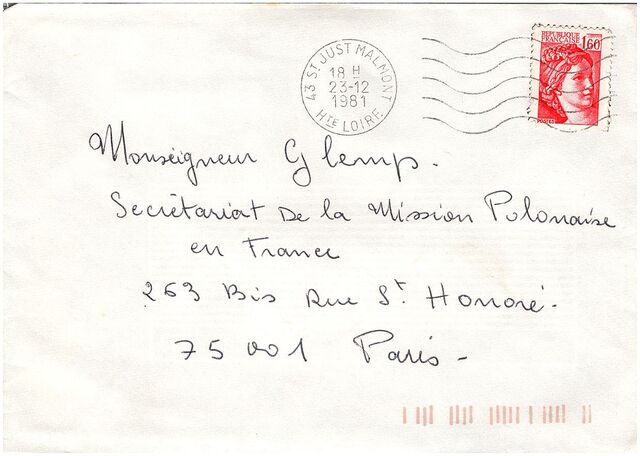 43 ST JUST MALMONT
18 H
23-12
1981
HTE LOIRE
REPUBLIQUE
FRANCAISE
1,60
POSTES
Monseigneur Glemp.
Secrétariat De la Mission Polonaise
en France
263 Bis Rue St Honoré.
75 001 Paris -